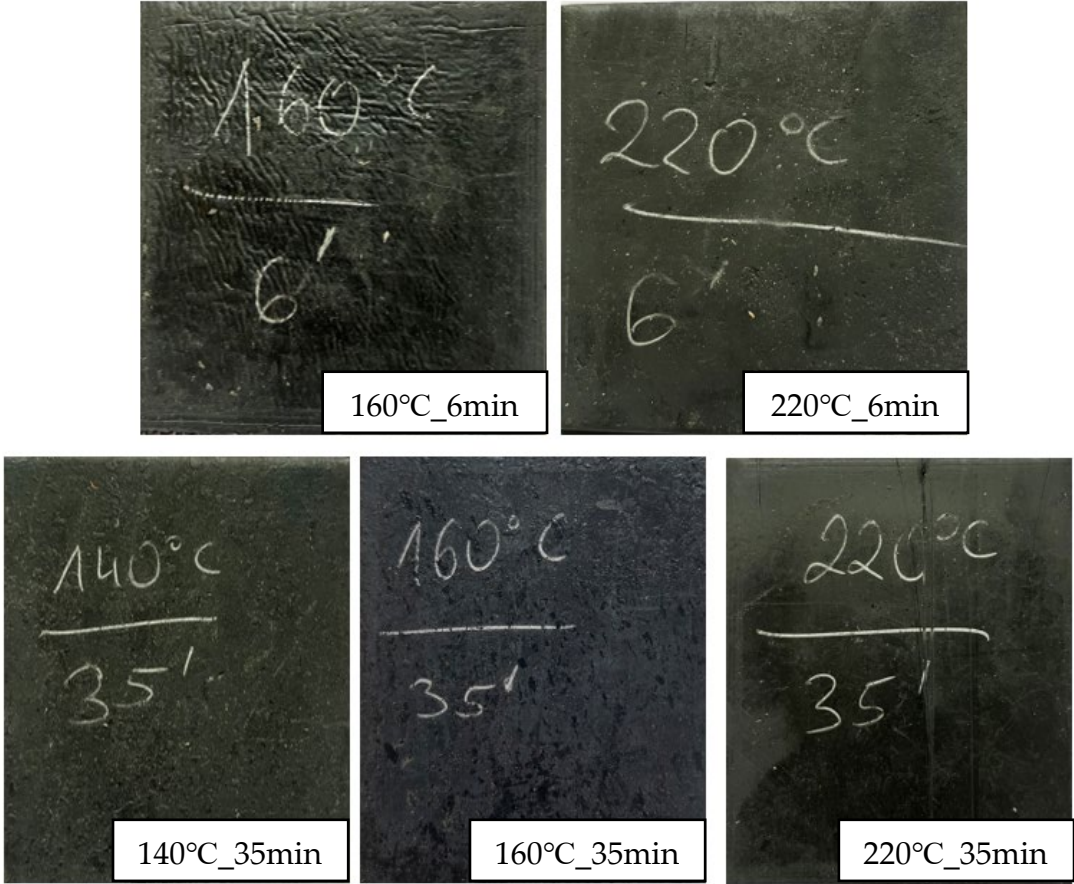 160°C
6'
160°C_6min
220°C
6'
220°C_6min
140°C
35'
140°C_35min
160°C
35'
160°C_35min
220°C
35'
220°C_35min